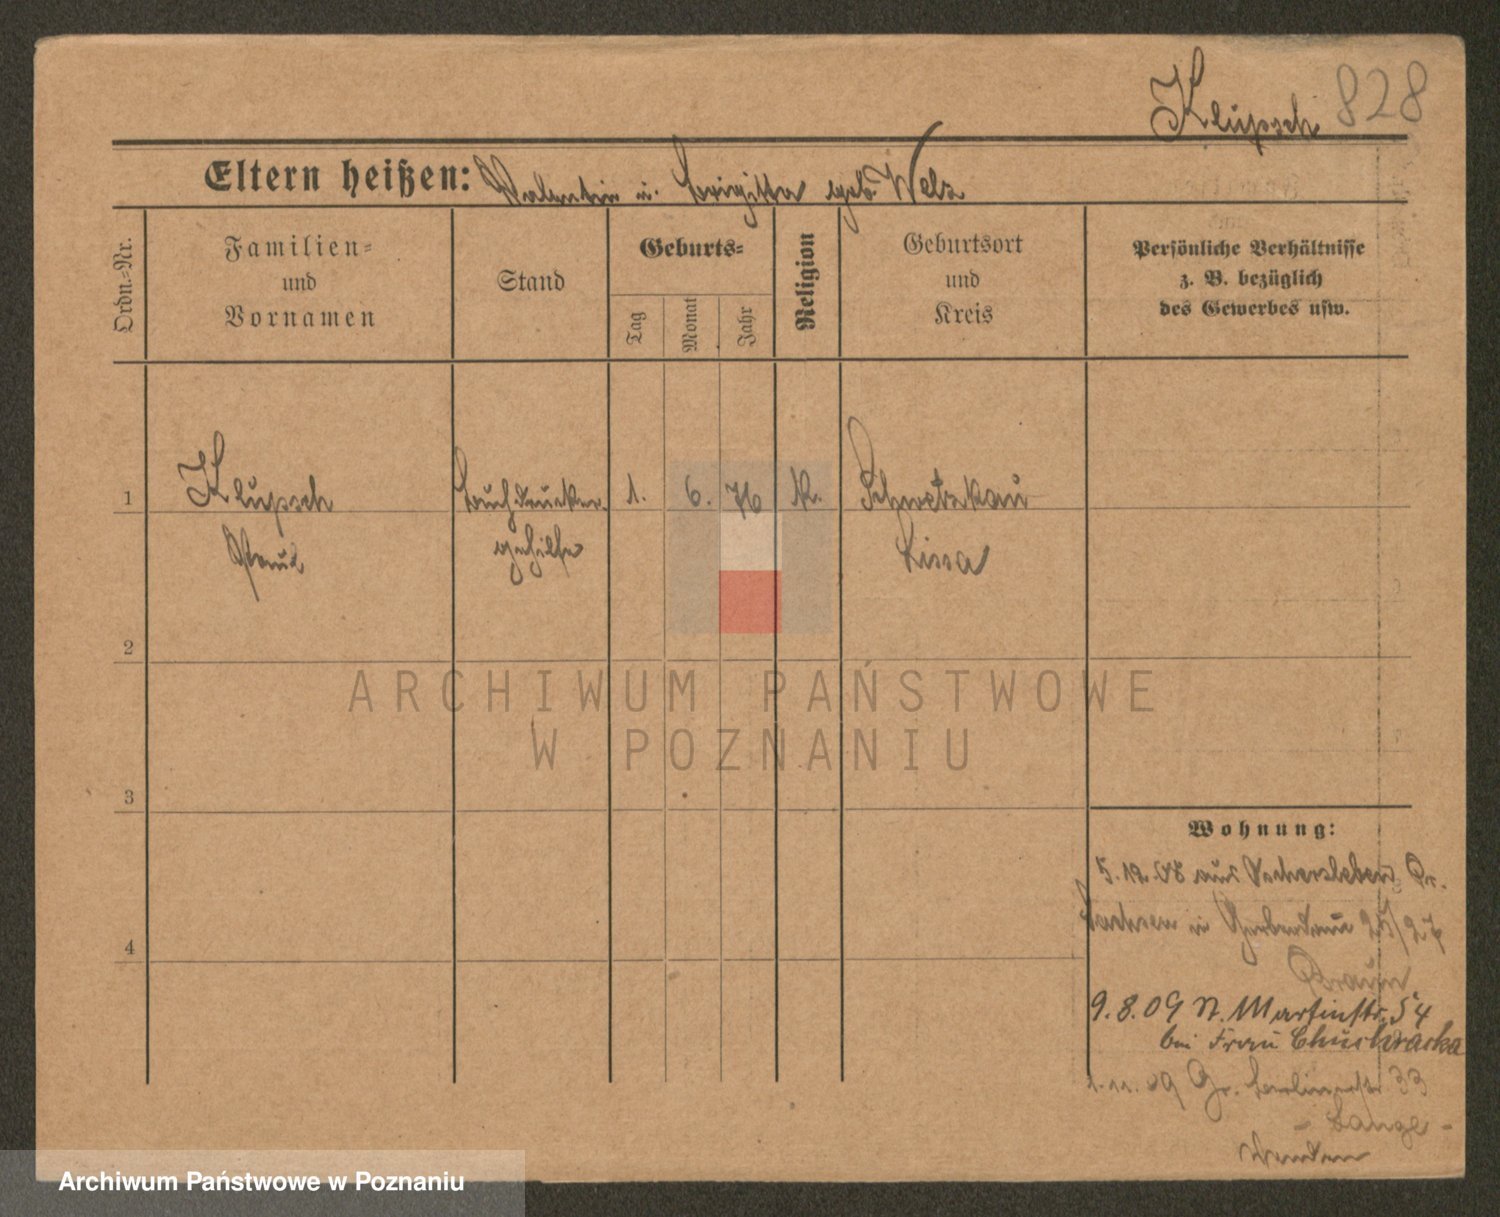 Klupsch 828
Eltern heißen: Valentin u. Brigitta geb. Welz
Ordn.-Nr.
Familien-
und
Vornamen
Stand
Geburts-
Tag
Monat
Jahr
Religion
Geburtsort
und
Kreis
Persönliche Verhältnisse
z. B. bezüglich
des Gewerbes usw.
1 Klupsch Buchdrucker- 1. 6. 76 K. Schwetzkau
Paul gehilfe Lissa
2
ARCHIWUM PAŃSTWOWE
W POZNANIU
3
Wohnung:
5. 12. 08 aus Oschersleben Pr.
Sachsen in 25/27
4
Braun
9. 8. 09 St. Martinstr. 54
bei Frau
1. 11. 09 Gr. Berlinerstr 33
- Lange -
Archiwum Państwowe w Poznaniu